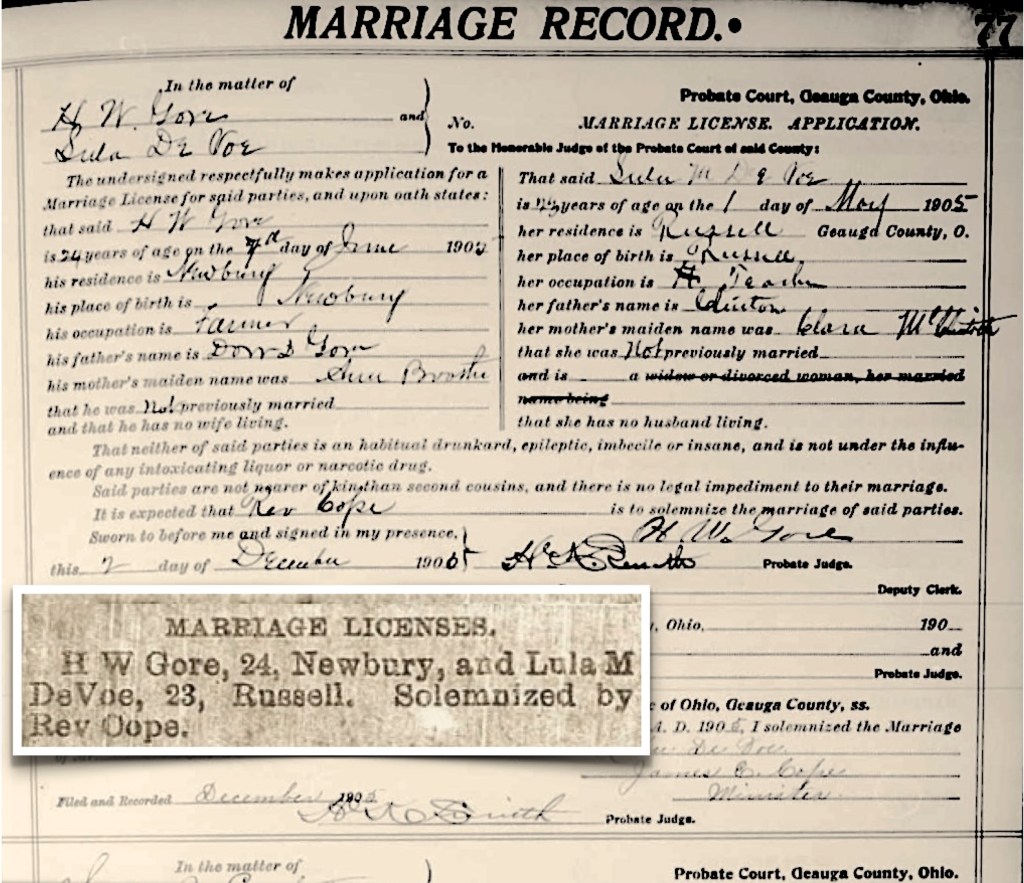 MARRIAGE RECORD.•
77
In the matter of
H W Gore and
Lula De Voe
Probate Court, Geauga County, Ohio.
No. MARRIAGE LICENSE. APPLICATION.
To the Honorable Judge of the Probate Court of said County:
The undersigned respectfully makes application for a
Marriage License for said parties, and upon oath states:
that said H W Gore
is 24 years of age on the day of June 190
his residence is Newbury
his place of birth is Newbury
his occupation is Farmer
his father's name is Gore
his mother's maiden name was
that he was Not previously married
and that he has no wife living.
That said Lulu M De Voe
is 23 years of age on the 1 day of May 1905
her residence is Russell Geauga County, O.
her place of birth is Russell
her occupation is
her father's name is Clinton
her mother's maiden name was Clara
that she was Not previously married
and is a widow or divorced woman, her married
name being
that she has no husband living.
That neither of said parties is an habitual drunkard, epileptic, imbecile or insane, and is not under the influ-
ence of any intoxicating liquor or narcotic drug.
Said parties are not nearer of kin than second cousins, and there is no legal impediment to their marriage.
It is expected that Rev Cope is to solemnize the marriage of said parties.
Sworn to before me and signed in my presence, H W. Gore
this 2 day of December 1905 Probate Judge.
Deputy Clerk.
, Ohio, 190
and
Probate Judge.
MARRIAGE LICENSES.
H W Gore, 24, Newbury, and Lula M
DeVoe, 23, Russell. Solemnized by
Rev Cope.
of Ohio, Geauga County, ss.
A. D. 1905, I solemnized the Marriage
De Voe
James Cope
Minister
Filed and Recorded December 1905
Smith Probate Judge.
In the matter of
Probate Court, Geauga County, Ohio.